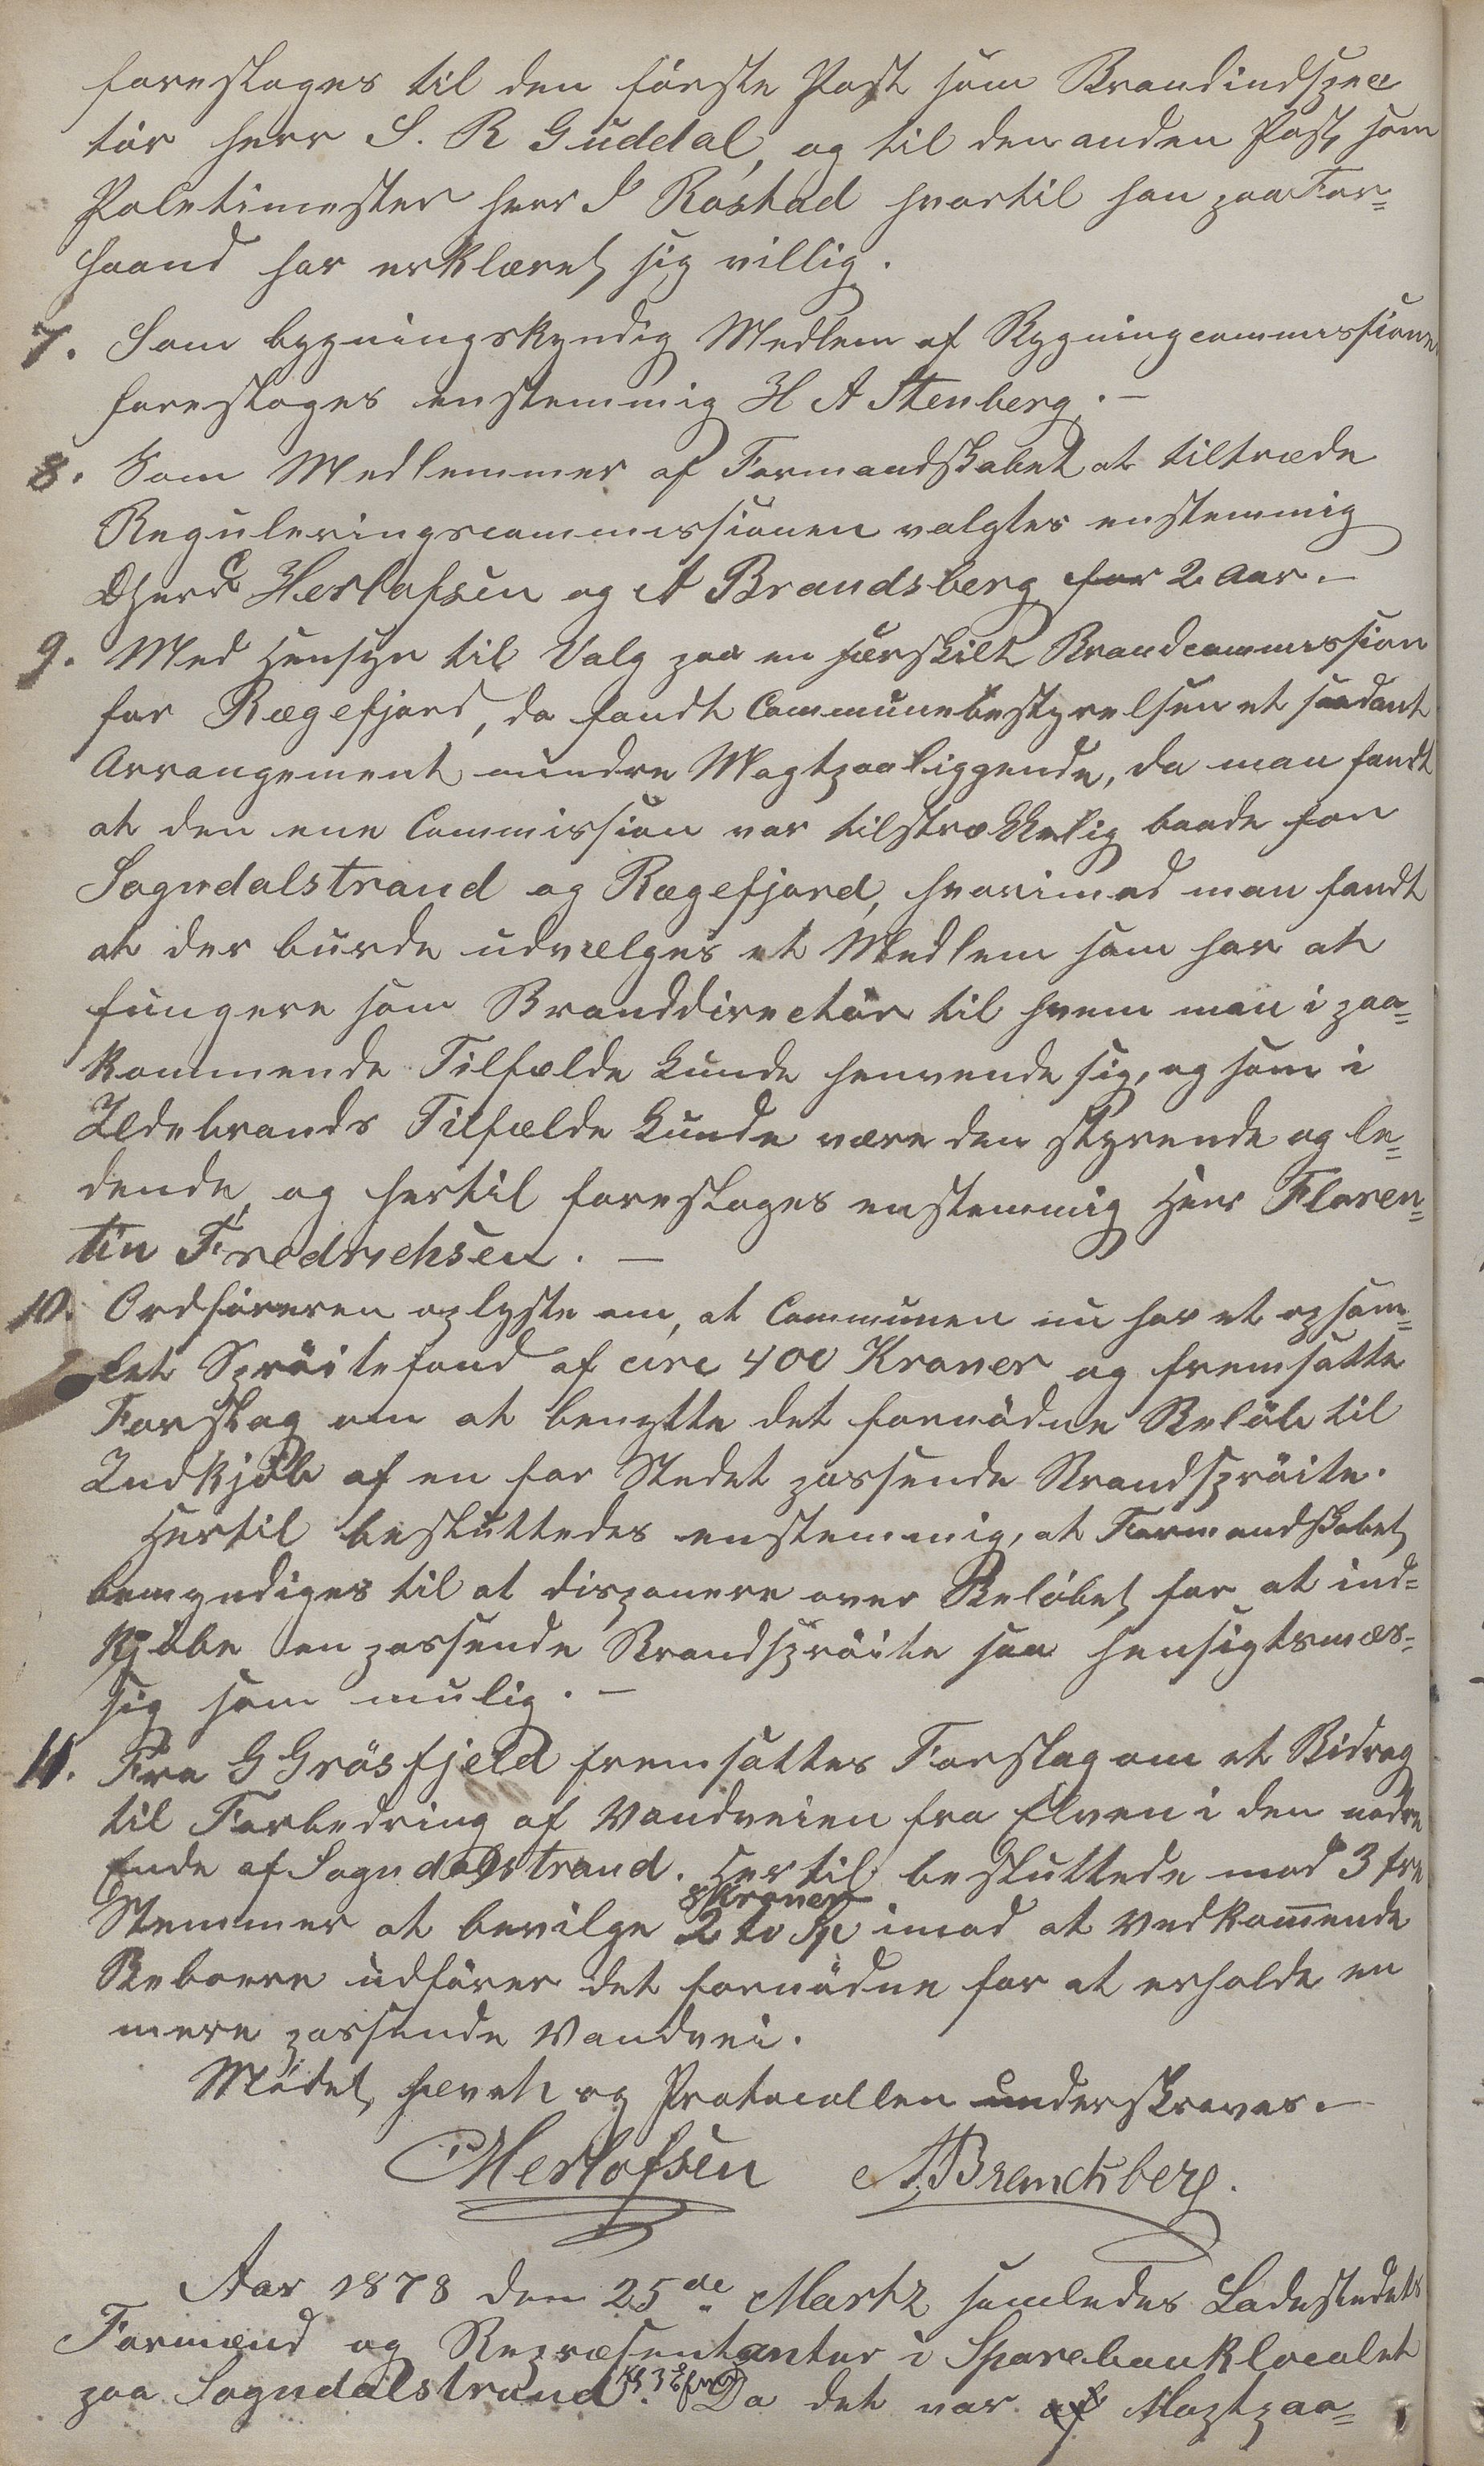 foreslages til den første Post som Brandindspec
tør herr S. R Guddal, og til den anden Post, som
Politimester herr I Røstad hvortil han paa For=
haand har erklæret sig villig.
7. Som bygningskyndig Medlem af Bygningcommissionen
foreslages enstemmig H A Stenberg. —
8. Som Medlemmer af Formandskabet at tiltræde
Reguleringscommissionen valgtes enstemmig
Dherr C Herlofsen og A Brandsberg for 2 Aar. —
9. Med Hensyn til Valg paa en særskilt Brandcommission
for Rægefjord, da fandt Communebestyrelsen et saadant
Arrangement mindre Magtpaaliggende, da man fandt
at den ene Commission var tilstrækkelig baade for
Sogndalstrand og Rægefjord, hvorimod man fandt
at der burde udvælges et Medlem som har at
fungere som Branddirectør til hvem man i paa=
kommende Tilfælde kunde henvende sig, og som i
Ildebrands Tilfælde kunde være den styrende og le=
dende, og hertil foreslages enstemmig Herr Floren=
tin Fredrichsen. —
10. Ordføreren oplyste om, at Communen nu har et opsam=
let Sprøitefond af circ 400 Kroner og fremsatte
Forslag om at benytte det fornødne Beløb til
Indkjøb af en for Stedet passende Brandsprøite.
Hertil besluttedes enstemmig, at Formandskabet
bemyndiges til at disponere over Beløbet for at ind=
kjøbe en passende Brandsprøite saa hensigtsmæs=
sig som mulig. —
11. Fra G Grøsfjeld fremsattes Forslag om et Bidrag
til Forbedring af Vandveien fra Elven i den nedre
Ende af Sogndalstrand. Hertil besluttede mod 3 tre
8 Kroner
Stemmer at bevilge 2 to Sp imod at Vedkommende
Beboere udfører det fornødne for at erholde en
mere passende Vandvei.
Mødet hævet og Protocollen underskreves. —
C Herlofsen A. Brandsberg.
Aar 1878 den 25de Martz samledes Ladestedets
Formænd og Repræsentanter i Sparebanklocalet
paa Sogndalstrand Kl 3 Efm. Da det var af Magtpaa=